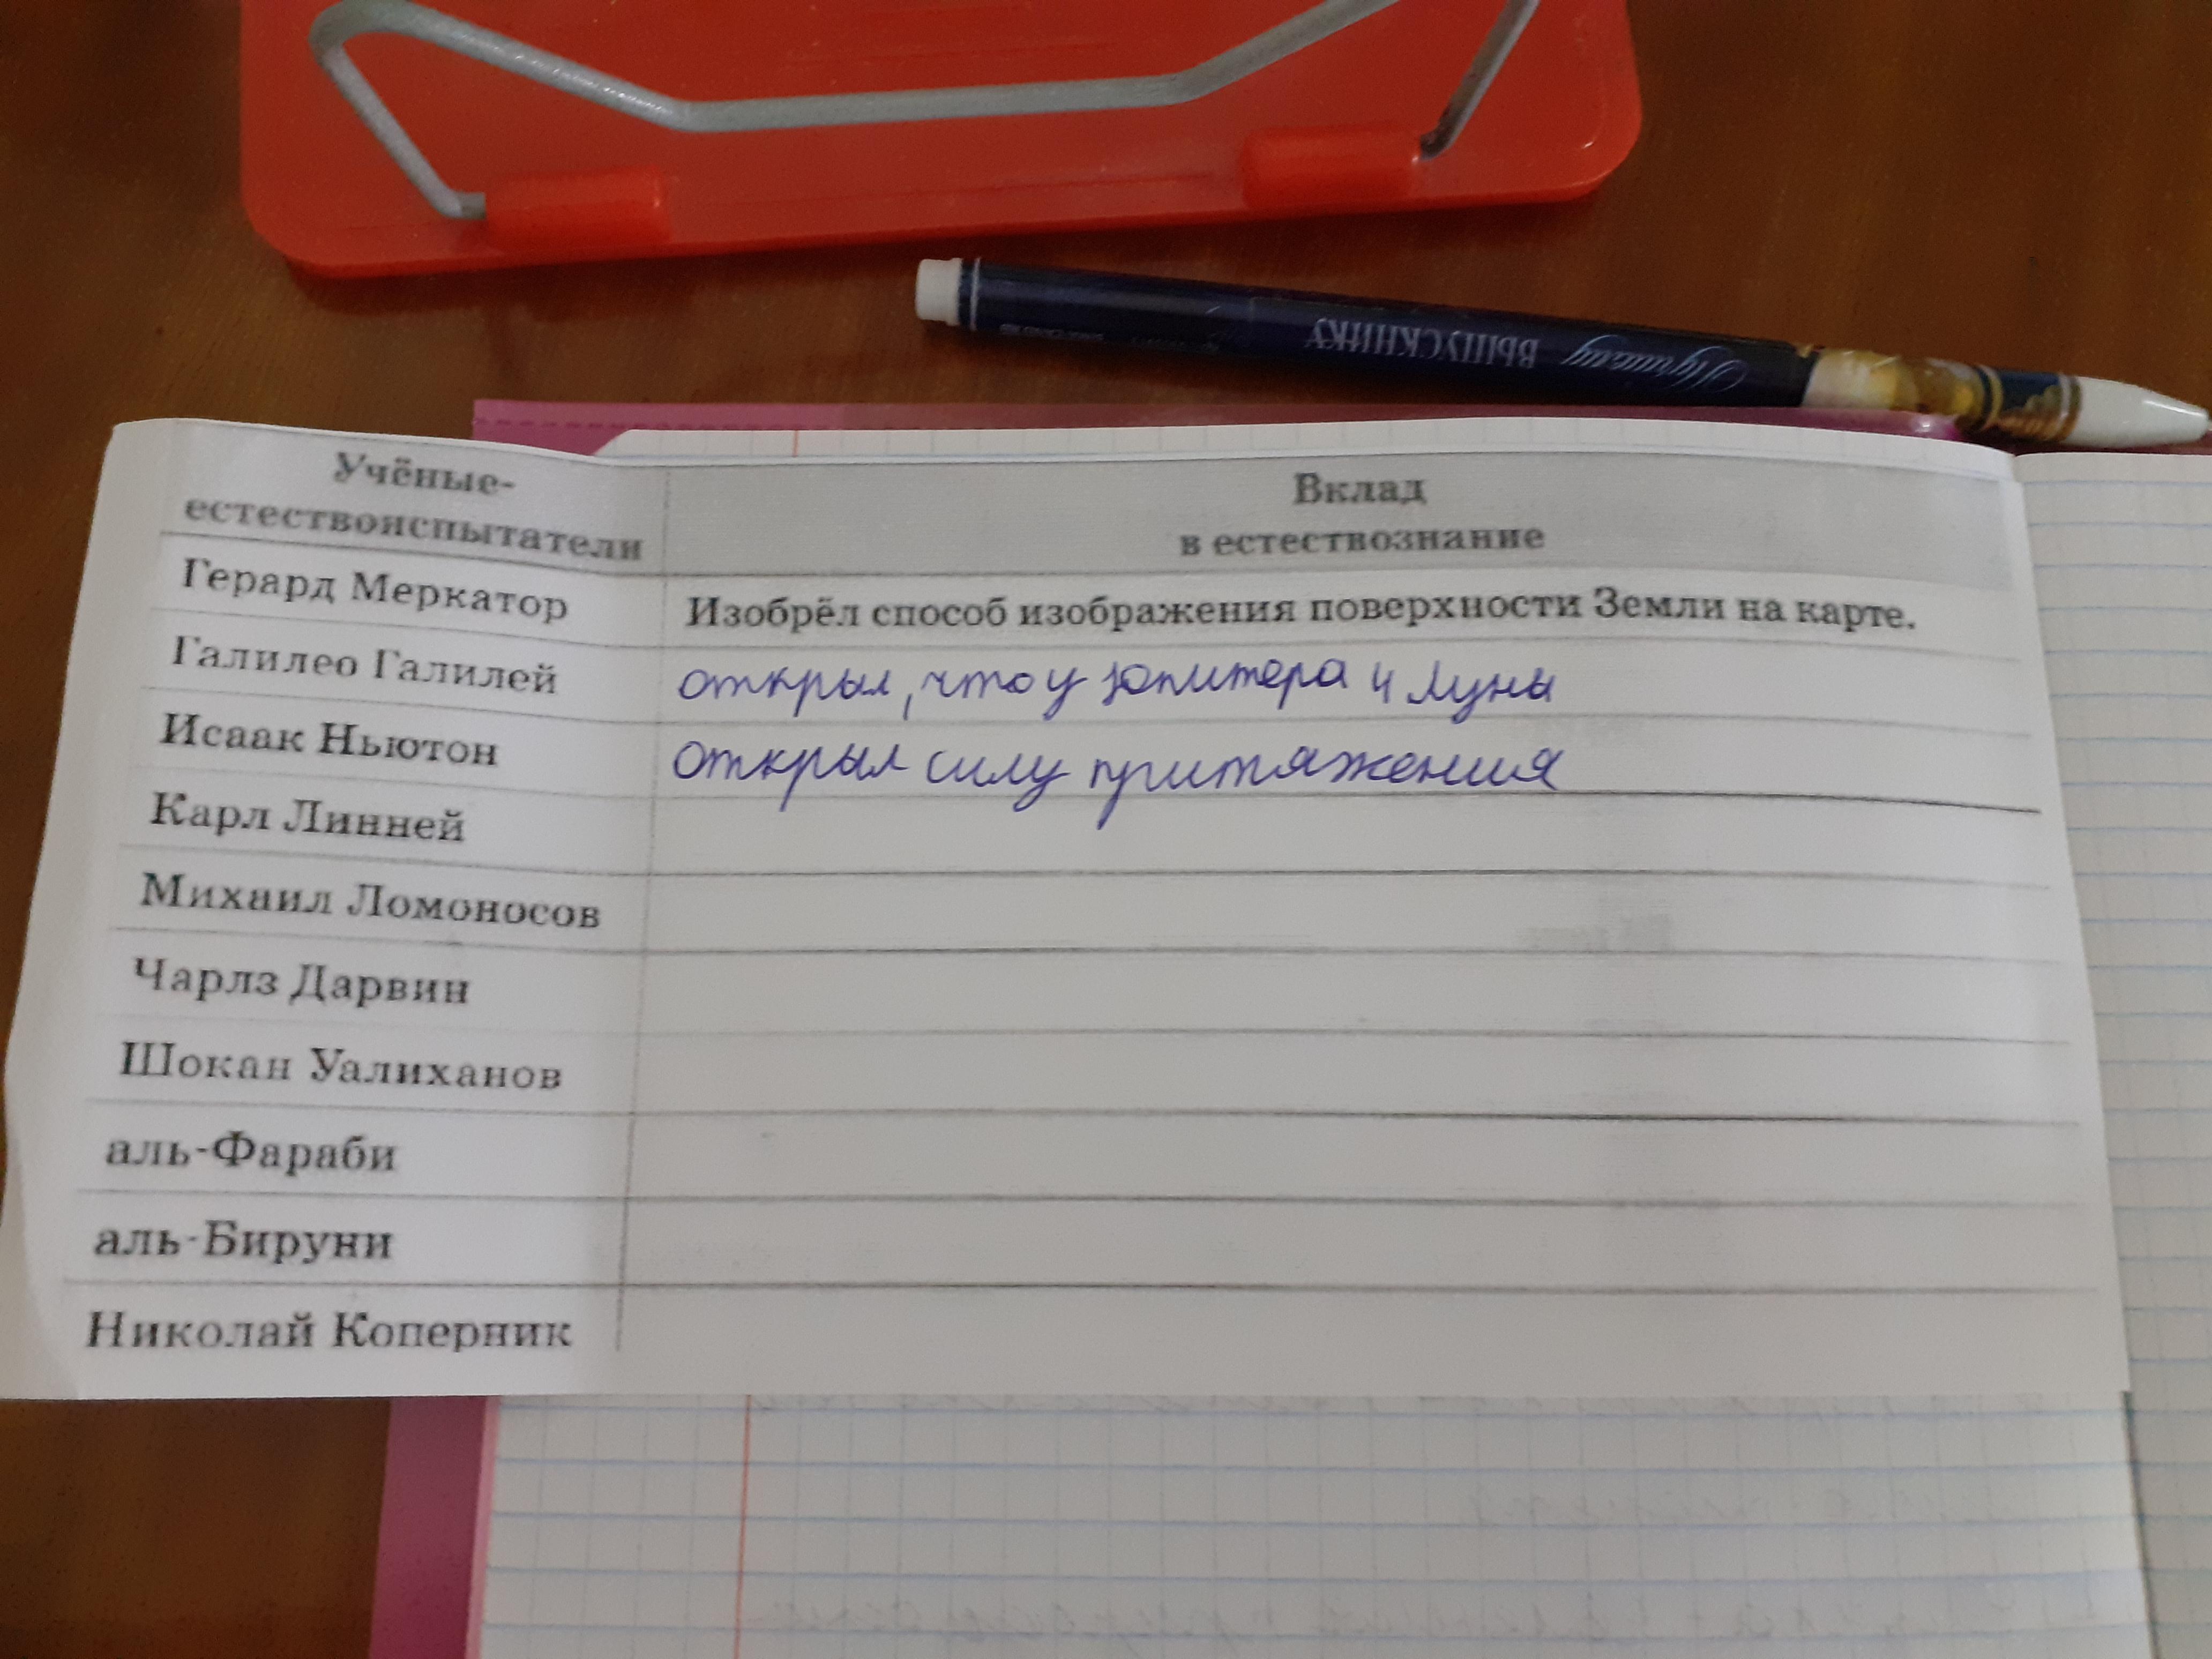 Лучшему ВЫПУСКНИКУ
Учёные-
естествоиспытатели
Вклад
в естествознание
Герард Меркатор
Изобрёл способ изображения поверхности Земли на карте.
Галилео Галилей
открыл, что у юпитера 4 луны
Исаак Ньютон
открыл силу притяжения
Карл Линней
Михаил Ломоносов
Чарлз Дарвин
Шокан Уалиханов
аль-Фараби
аль-Бируни
Николай Коперник